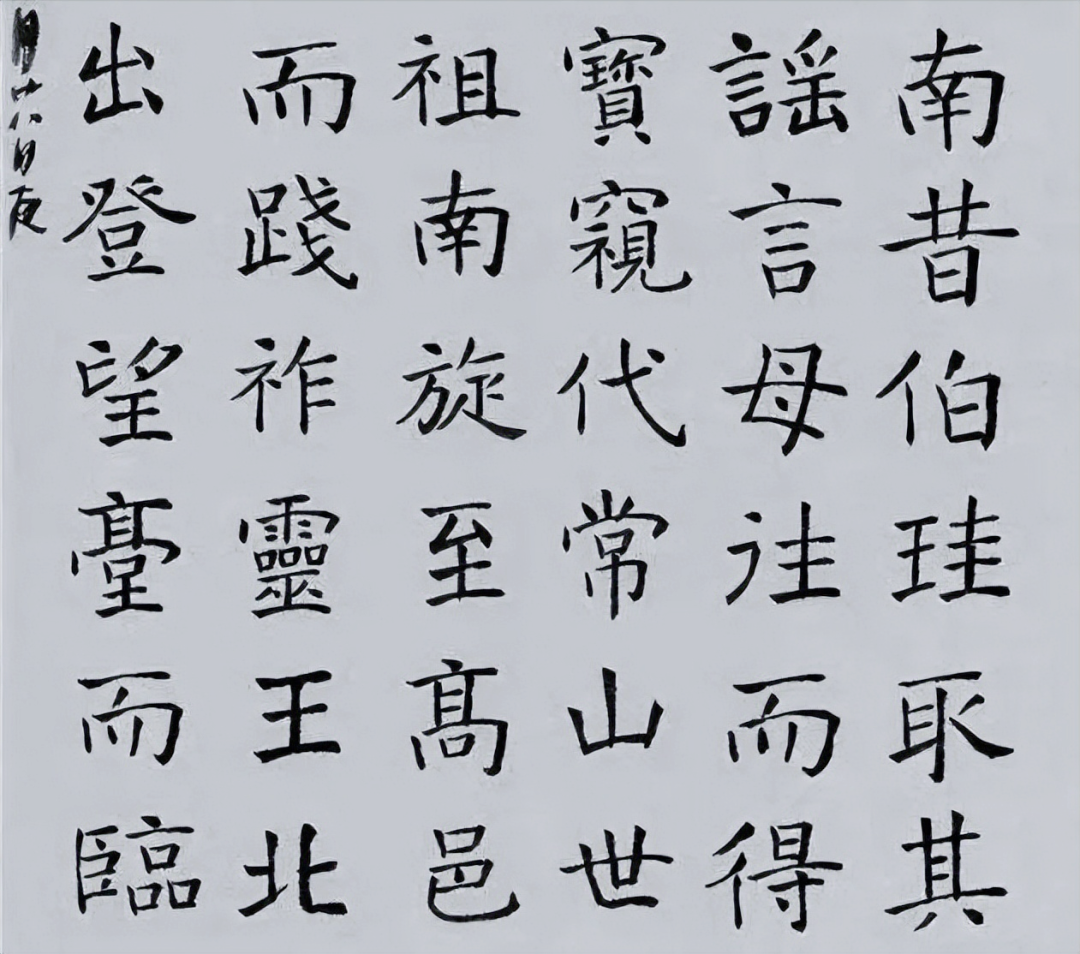 南昔伯珪取其
謡言母徃而得
寳窺代常山世
祖南旋至髙邑
而踐祚靈王北
出登望臺而臨
廿八日夜